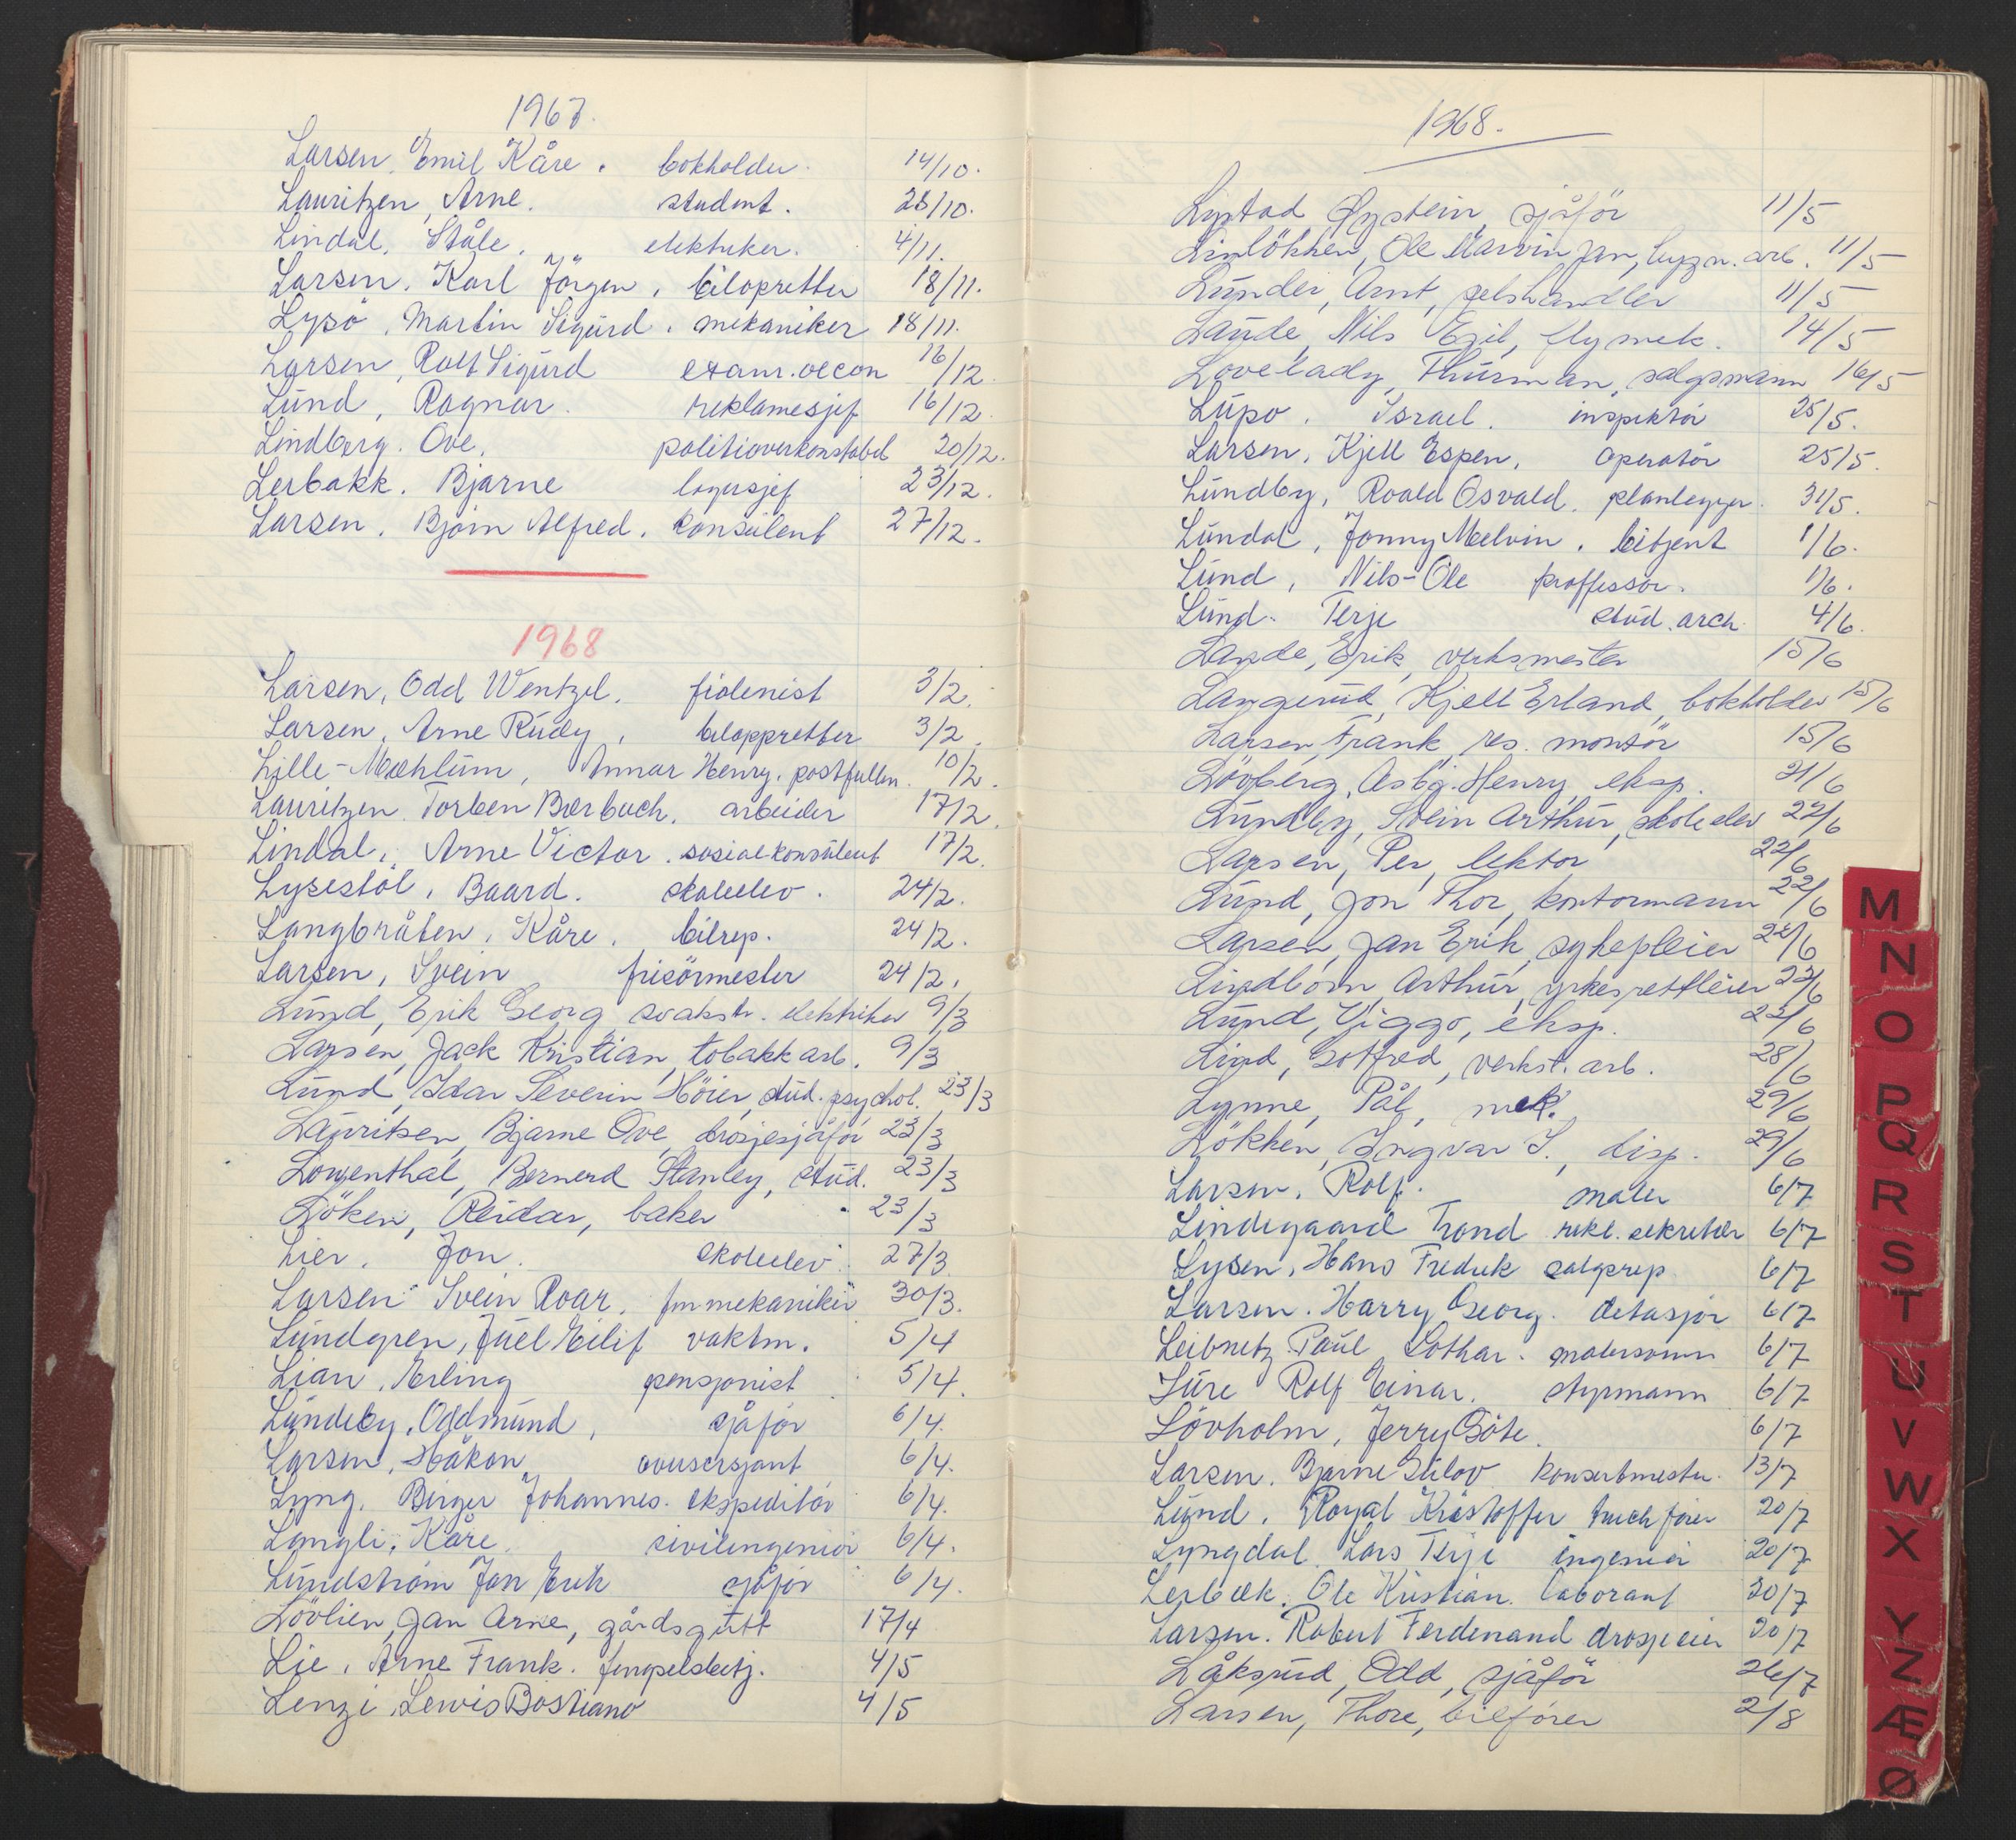 1967.
Larsen, Emil Kåre. bokholder. 14/10.
Lauritzen, Arne. student. 28/10.
Lindal, Ståle. elektriker. 4/11.
Larsen, Karl Jörgen, biloppretter 18/11.
Lysö, Martin Sigurd. mekaniker 18/11.
Larsen, Rolf Sigurd exam.oecon 16/12.
Lund, Ragnar. reklamesjef 16/12.
Lindberg. Ove. politioverkonstabel 20/12.
Lerbakk. Bjarne lagersjef 23/12.
Larsen. Björn Alfred. konsulent 27/12.
1968
Larsen, Odd Wentzel. fiolinist 3/2.
Larsen, Arne Rudy, biloppretter 3/2.
Lille-Mæhlum, Annar Henry. postfullm. 10/2.
Lauritzen Torben Bærbach. arbeider 17/2.
Lindal, Arne Victor. sosialkonsulent 17/2.
Lysestöl, Baard. skoleelev. 24/2.
Langbråten, Kåre. bilrep. 24/2.
Larsen, Svein frisörmester 24/2.
Lund, Erik Georg svakstr. elektriker 9/3
Larsen, Jack Kristian, tobakkarb. 9/3
Lund, Idar Severin Höier, stud. psychol. 23/3
Lauritsen, Bjarne Ove, drosjesjåför 23/3
Lowenthal, Bernerd Stanley, stud. 23/3
Löken, Reidar, baker 23/3
Lier, Jon. skoleelev. 27/3
Larsen Svein Roar. finmekaniker 30/3.
Lundgren, Juel Eilif vaktm. 5/4
Lian, Erling pensjonist 5/4.
Lundeby, Oddmund, sjåför 6/4.
Larsen, Håkon oversersjant 6/4.
Lyng. Birger Johannes. ekspeditör 6/4.
Langli, Kåre. sivilingeniör 6/4.
Lundström Jan Erik sjåför 6/4.
Lövlien, Jan Arne, gårdsgutt 17/4
Lie, Arne Frank. fengselsbetj. 4/5
Lenzi, Lewis Bastiano 4/5
1968.
Lystad Øystein, sjåför 11/5
Linlökken, Ole Marvin Jan, bygn. arb. 11/5
Lunder, Arnt, pelshandler 11/5
Lande, Nils Egil, flymek. 14/5
Lovelady, Thurman, salgsmann 16/5
Lupo. Israel. inspektör 25/5.
Larsen, Kjell Espen. operatör 25/5.
Lundby, Roald Osvald. planlegger. 31/5.
Lundal, Jonny Melvin. betjent 1/6.
Lund, Nils-Ole proffessor. 1/6.
Lund. Terje stud. arch. 4/6.
Lande, Erik, verksmester 15/6
Langerud, Kjell Erland, bokholder 15/6
Larsen, Frank, rs. montör 15/6
Lövberg, Asbj. Henry, eksp. 21/6
Lundby, Svein Arthur, skoleelev 22/6
Larsen, Per, lektor 22/6
Lund, Jon Thor, kontormann 22/6
Larsen, Jan Erik, sykepleier 22/6
Lindbom, Arthur, yrkesrettleier 22/6
Lund, Viggo, eksp. 22/6
Lind, Gotfred, verkst. arb. 28/6
Lynne, Pål, mek. 29/6
Lökken, Ingvar S., disp. 29/6
Larsen, Rolf. maler 6/7
Lindegaard Trond rekl. sekretær 6/7
Lysen, Hans Fredrik salgsrep. 6/7
Larsen. Harry Georg. detasjör 6/7
Leibnetz Paul Lothar. malersvenn 6/7
Lure Rolf Einar. styrmann 6/7
Lövholm, Jerry Göte. 6/7
Larsen. Bjarne Eilov konsertmester. 13/7
Lund. Royal Kristoffer truckförer 20/7
Lyngdal. Lars Terje ingeniör 20/7
Lerbæk. Ole Kristian. laborant 20/7
Larsen. Robert Ferdinand drosjeeier 20/7
Låksrud, Odd, sjåför 26/7
Larsen, Thore, bilförer 2/8
M
N
O
P
Q
R
S
T
U
V
W
X
Y
Z
Æ
Ø